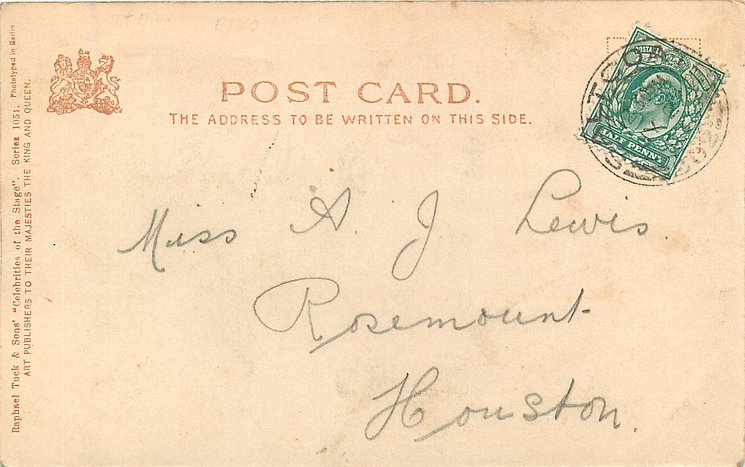 POST CARD.
THE ADDRESS TO BE WRITTEN ON THIS SIDE.
Miss A. J. Lewis.
Rosemount
Houston.
Raphael Tuck & Sons' "Celebrities of the Stage". Series 1051. Phototyped in Berlin
ART PUBLISHERS TO THEIR MAJESTIES THE KING AND QUEEN.
HALF PENNY